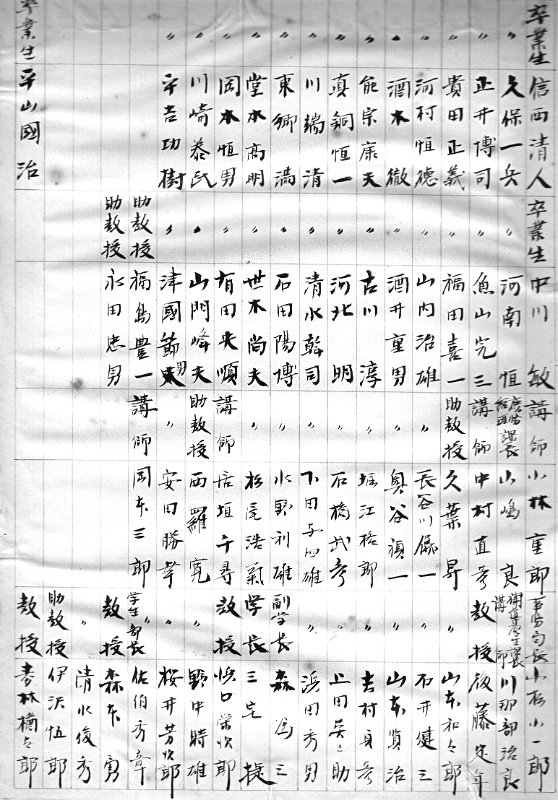 卒業生 信西清人
〃 久保一兵
〃 正井博司
〃 貴田正義
〃 河村恒徳
〃 酒木徹
〃 能宗康夫
〃 真銅恒一
〃 川端清
〃 東郷満
〃 堂本高明
〃 岡本恒男
〃 川崎泰氏
〃 平吉功樹
卒業生 平山國治
卒業生 中川敏
〃 河南恒
〃 魚山完三
〃 福田喜一
〃 山内治雄
〃 酒井重男
〃 古川淳
〃 河北明
〃 清水幹司
〃 石田陽博
〃 世木尚夫
〃 有田夫順
〃 山門峰夫
〃 津國節男
助教授 福島豊一
助教授 永田忠男
講師 小林重郎
課長 小嶋良
講師 中村直彦
助教授 久葉昇
〃 長谷川儀一
〃 奥谷禎一
〃 堀江格郎
〃 石橋武彦
〃 下田与四雄
〃 水野利雄
〃 松尾浩氣
講師 居垣千尋
助教授 西羅寛
〃 安田勝章
講師 岡本三郎
事務局長 小松小一郎
講師 川那部治良
教授 後藤定年
〃 山本和太郎
〃 石井健三
〃 山本質治
〃 吉村貞彦
〃 上田英之助
〃 浜田秀男
副学長 森為三
学長 三宅捷
教授 浜口栄次郎
〃 野中時雄
〃 桜井芳次郎
学生部長 佐伯秀章
教授 森本勇
〃 清水俊秀
助教授 伊沢恒郎
教授 林楠太郎